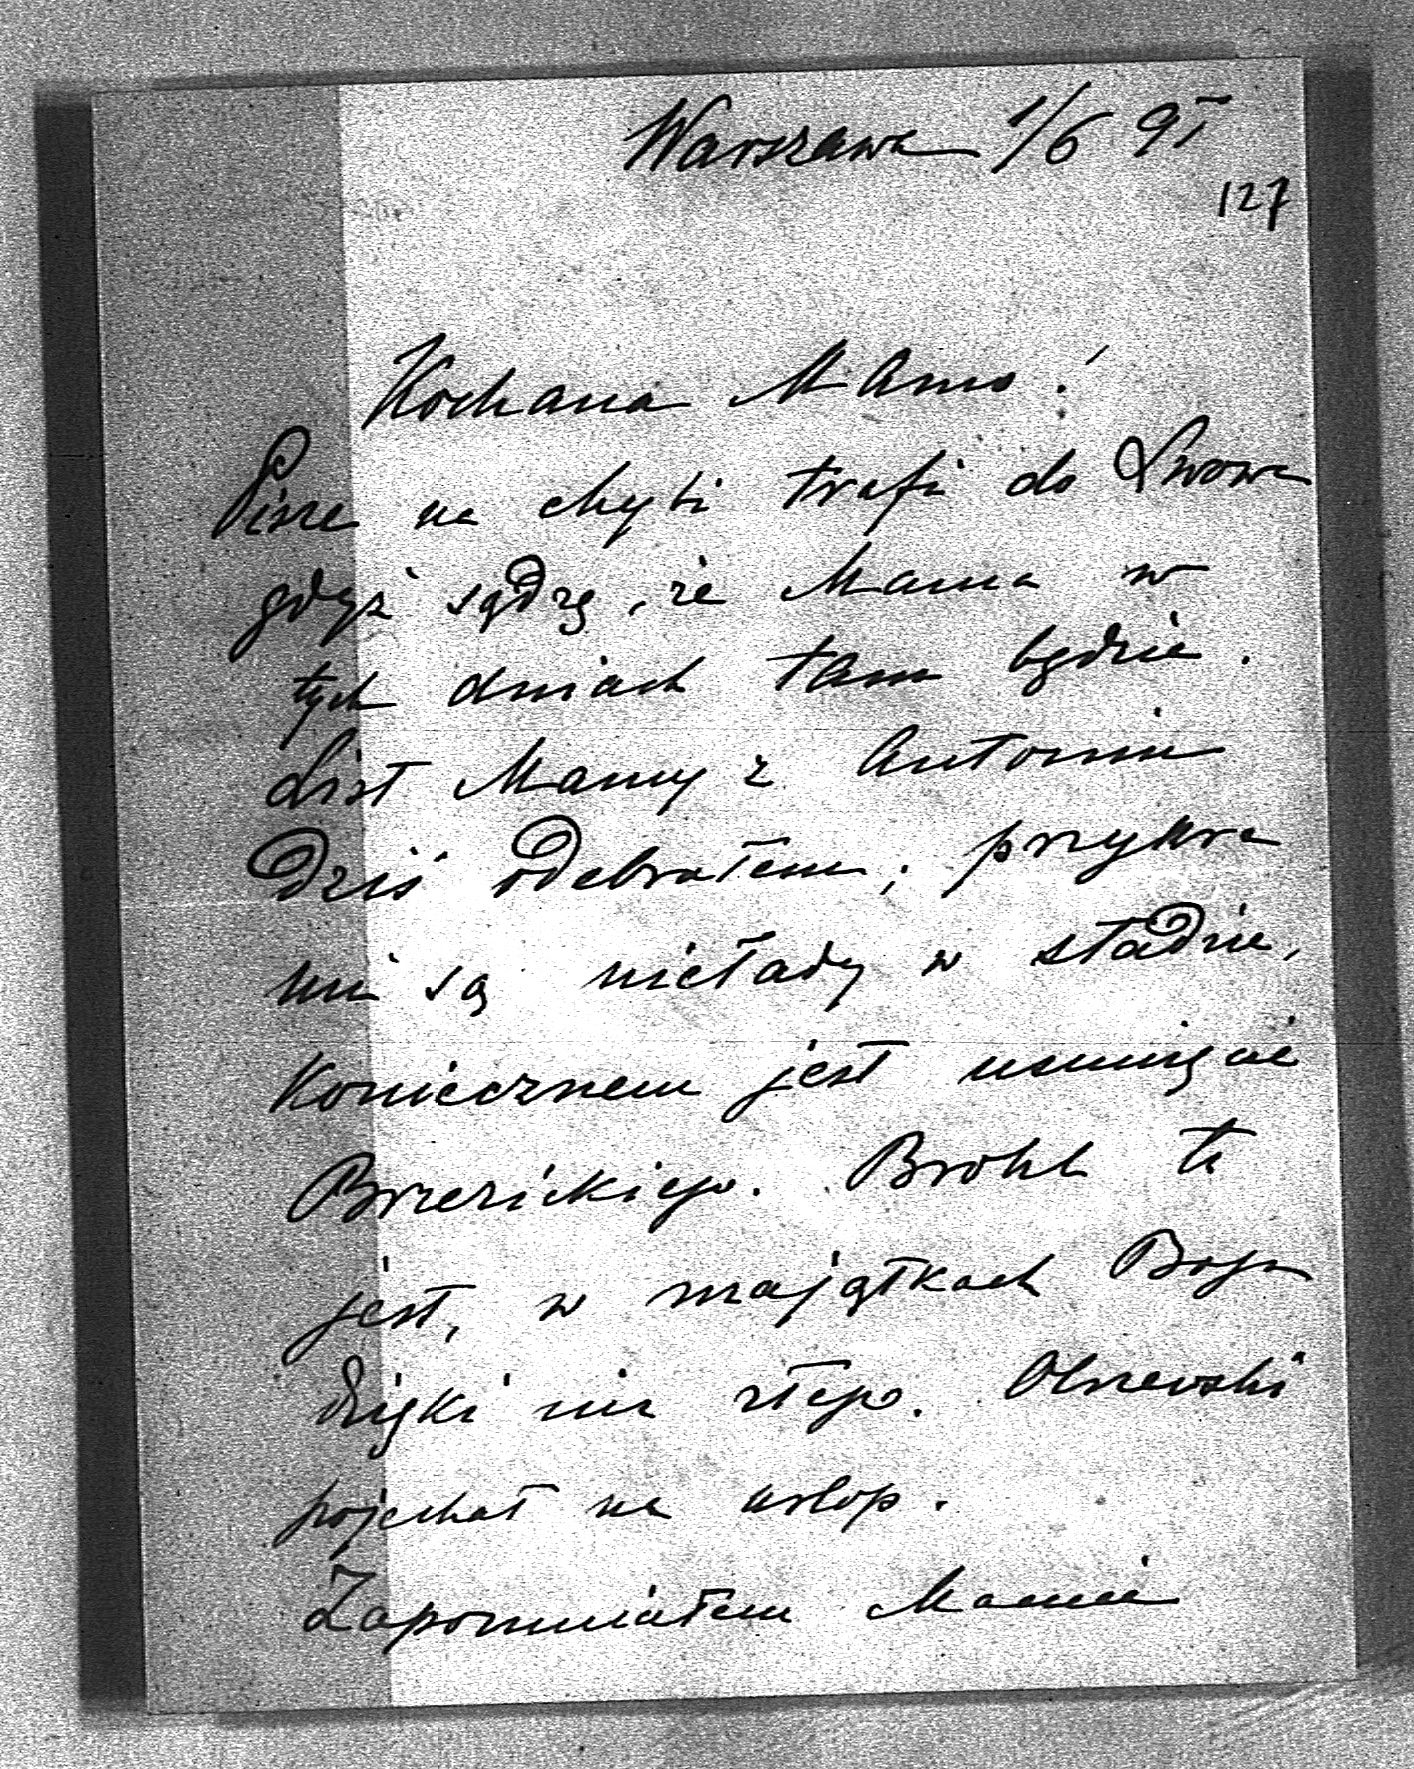 Warszawa 1/6 95
127
Kochana Mamo!
Pisze na chybi trafi do Lwowa
gdyż sądzę, że Mama w
tych dniach tam będzie.
List Mamy z Antonin
dziś odebrałem; przykre
mi są niełady w stadzie,
koniecznem jest usunięcie
Brzezickiego. Brohl tu
jest, w majątkach Bogu
dzięki nic złego. Olszewski
pojechał na urlop.
Zapomniałem Mamie